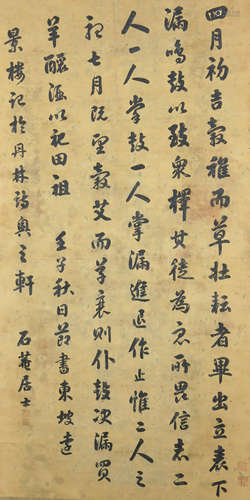 四月初吉穀稚而草壮耘者畢出立表下
漏鳴鼓以致衆擇其徒為衆所畏信者二
人一人掌鼓一人掌漏進退作止惟二人之
聽七月既望穀艾而草衰則仆鼓决漏買
羊釃酒以祀田祖 壬子秋日節書東坡遠
景樓記於丹林詩奥之軒
石菴居士